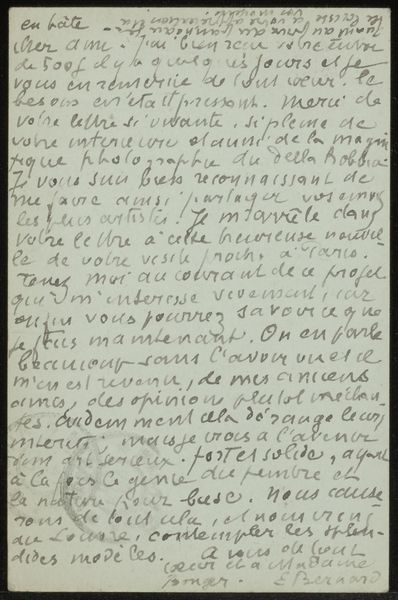 en hâte
cher ami. J'ai bien reçu votre
de 500f il y a quelques jours et je
vous en remercie de tout cœur. le
besoin en était pressant. Merci de
votre lettre si vivante, si pleine de
votre intérieur et aussi de la magni
fique photographie du della Robbia
Je vous suis bien reconnaissant de
me faire ainsi partager vos
les plus artistes. Je m'arrête dans
votre lettre à cette heureuse nouvel
le de votre visite proche à Paris.
Tenez moi au courant de ce projet
qui m'interesse vivement, car
enfin vous pourrez savoir ce que
je fais maintenant. On en parle
beaucoup sans l'avoir vu et il
m'en est revenu, de mes anciens
amis, des opinions plutot méchan
tes. Evidemment cela dérange leurs
interets, mais je crois à l'avenir
d'un art serieux. fort et solide, ayant
à la fois le genie du peintre et
la nature pour base. Nous cause
rons de tout cela, et nous irons
au Louvre, contempler les splen-
dides modèles. A vous de tout
cœur et à Madame
Bonger. E Bernard
quant au prix du panneau
votre appréciation